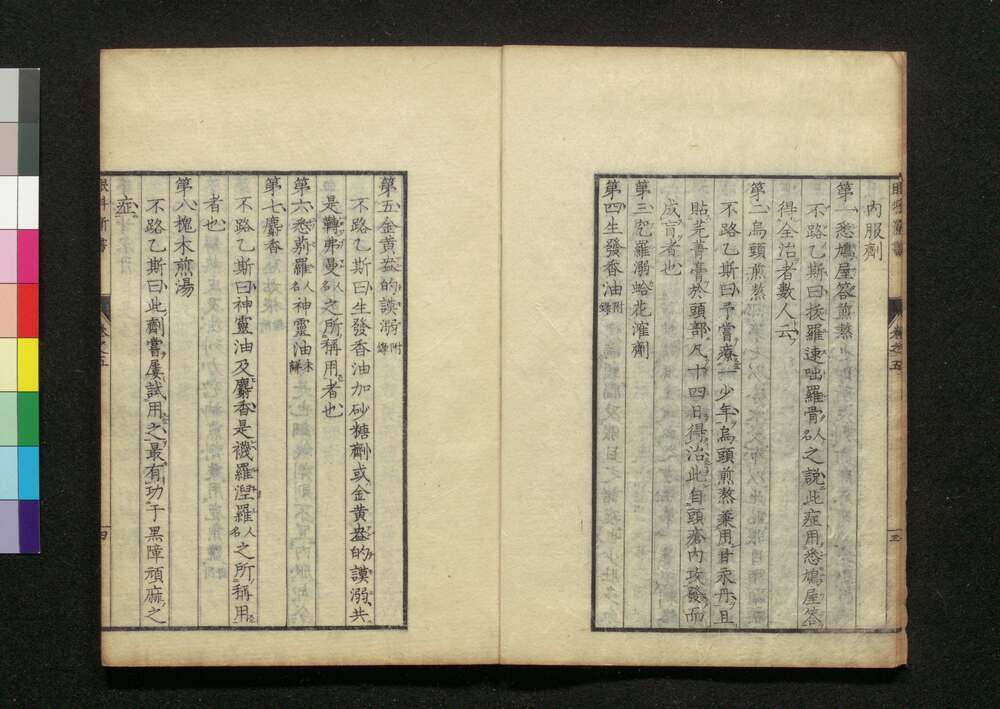 內服劑
第一悉鳩屋答煎熬
不路乙斯曰按羅連咄羅骨人名之說此症用悉鳩屋答
得全治者數人云
第二烏頭煎熬
不路乙斯曰予嘗療一少年烏頭煎熬兼用甘汞丹且
貼芫菁膏於頭部凡十四日得治此自頭瘡內攻發而
成盲者也
第三羅溺蛤花漼劑
第四生發香油附錄
第五金黃盎的謨溺附錄
不路乙斯曰生發香油加砂糖劑或金黃盎的謨溺共
是轉弗曼人名之所稱用者也
第六悉荊羅人名神靈油未詳
第七麝香
不路乙斯曰神靈油及麝香是襪羅涅羅人名之所稱用
者也
第八槐木煎湯
不路乙斯曰此劑嘗屢試用之最有功于黑障頑麻之
症
眼科新書
卷之五
四